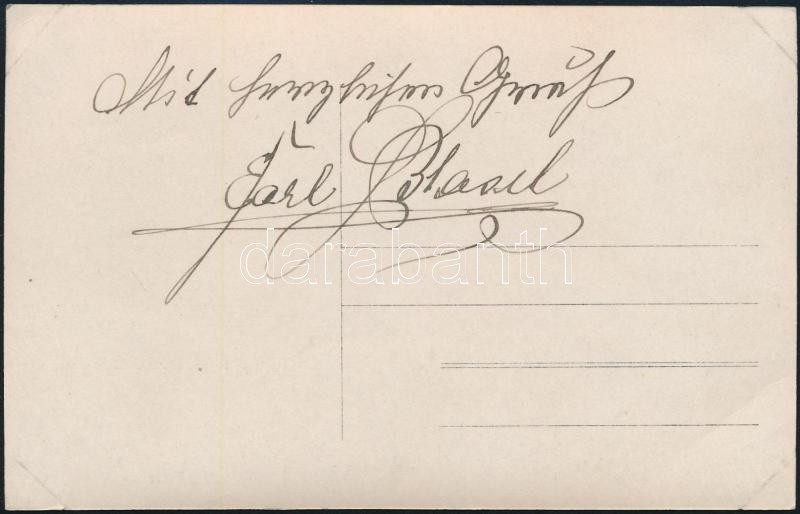 Mit herzlichem Gruß
Carl Blasel
darabanth